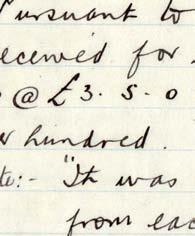 Pursuant to
received for
@ £3. 5. 0
hundred.
:- "It was
from eac